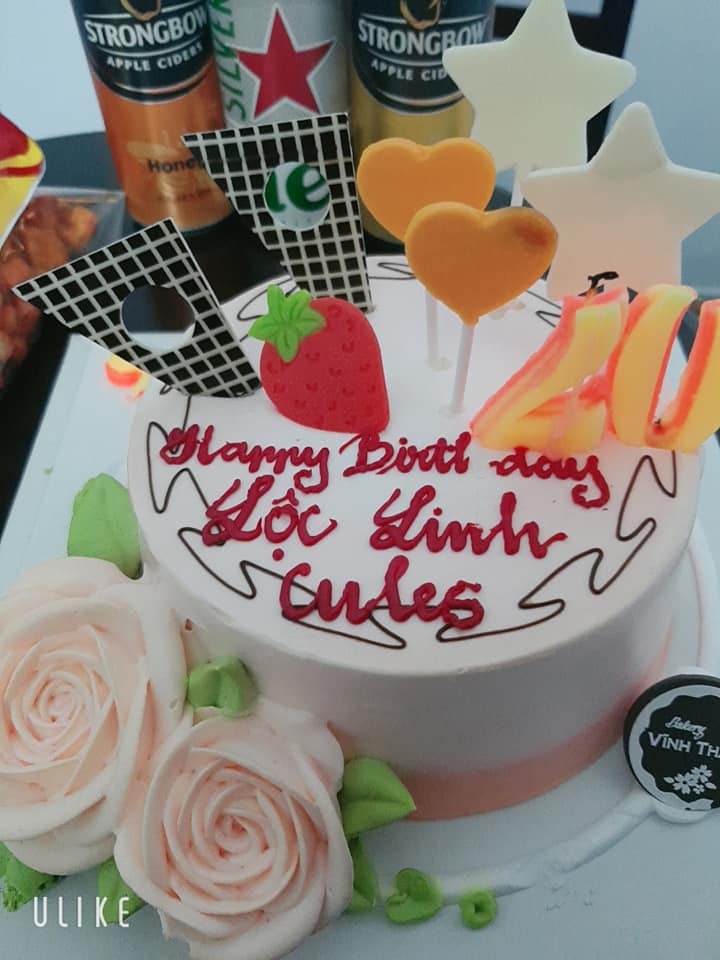 STRONGBOW
APPLE CIDERS
SILVER
STRONGBOW
APPLE CID
Honey
Happy Birthday
Lộc Linh
cules
20
Bakery
VĨNH THA
ULIKE